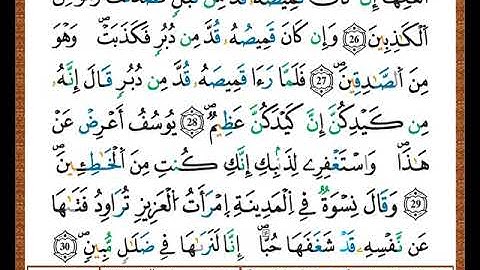 أَهْلِهَا إِن كَانَ قَمِيصُهُۥ قُدَّ مِن قُبُلٍ فَصَدَقَتْ وَهُوَ مِنَ
ٱلْكَٰذِبِينَ 26 وَإِن كَانَ قَمِيصُهُۥ قُدَّ مِن دُبُرٍ فَكَذَبَتْ وَهُوَ
مِنَ ٱلصَّٰدِقِينَ 27 فَلَمَّا رَءَا قَمِيصَهُۥ قُدَّ مِن دُبُرٍ قَالَ إِنَّهُۥ
مِن كَيْدِكُنَّ إِنَّ كَيْدَكُنَّ عَظِيمٌ 28 يُوسُفُ أَعْرِضْ عَنْ
هَٰذَا وَٱسْتَغْفِرِے لِذَنۢبِكِ إِنَّكِ كُنتِ مِنَ ٱلْخَاطِـِٕينَ
29 وَقَالَ نِسْوَةٌ فِے ٱلْمَدِينَةِ ٱمْرَأَتُ ٱلْعَزِيزِ تُرَٰوِدُ فَتَىٰهَا
عَن نَّفْسِهِۦ قَدْ شَغَفَهَا حُبًّا إِنَّا لَنَرَىٰهَا فِے ضَلَٰلٍ مُّبِينٍ 30